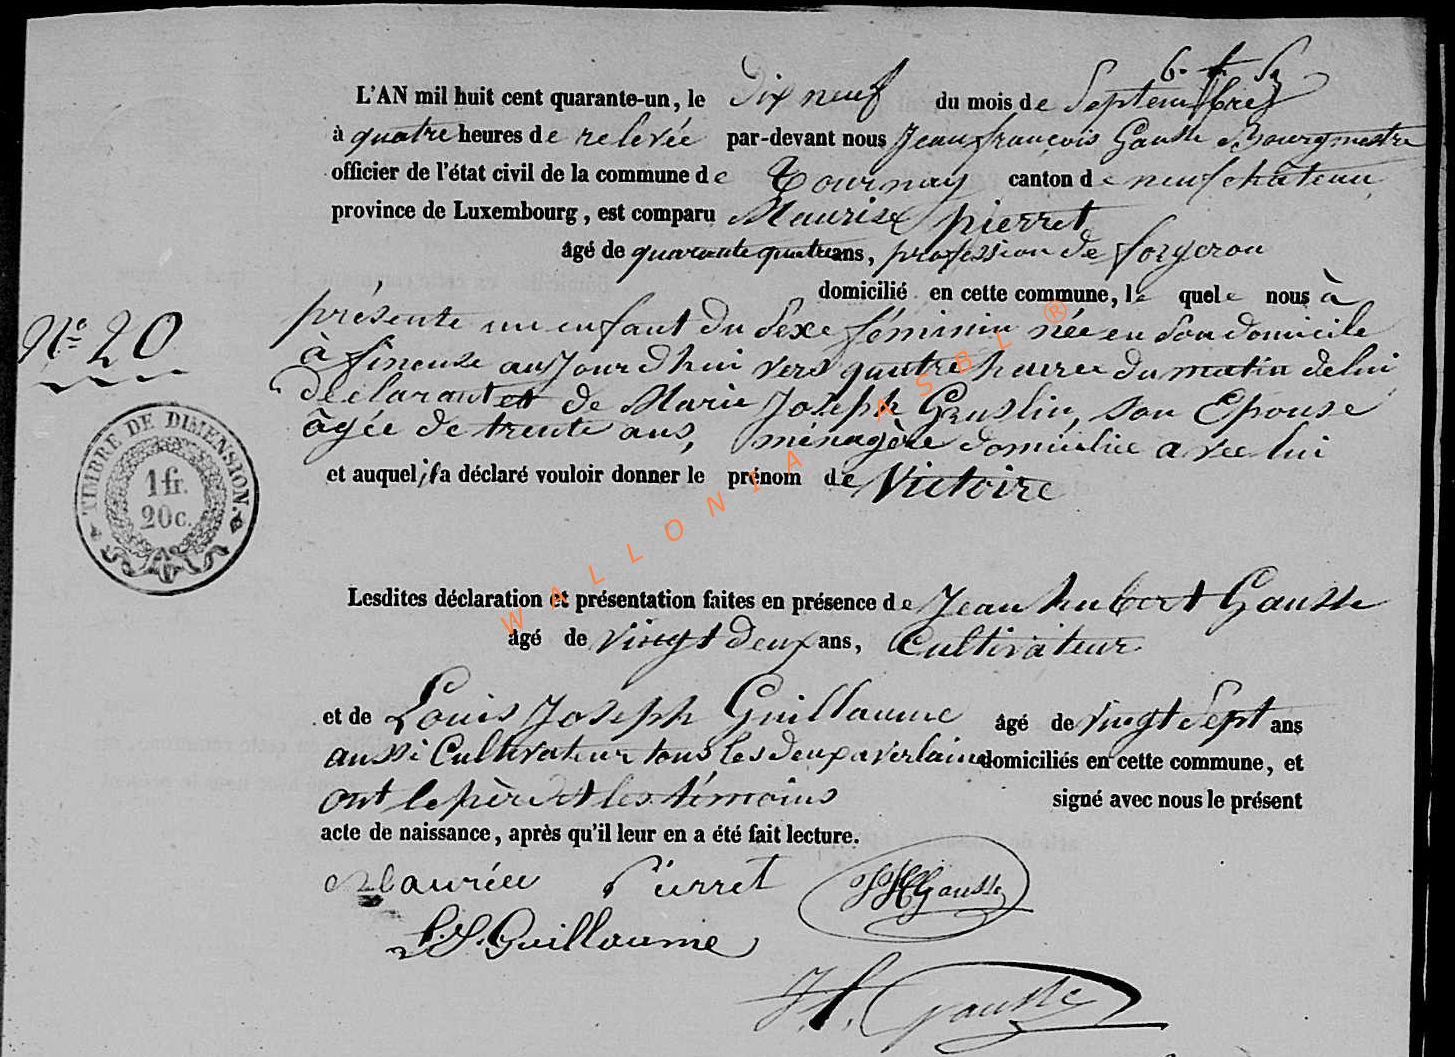 L'AN mil huit cent quarante-un, le Dix neuf du mois de Septembre
à quatre heures de relevée par-devant nous Jean françois Gausse Bourgmestre
officier de l'état civil de la commune de Tournay canton de neufchâteau
province de Luxembourg, est comparu Maurice pierret
âgé de quarante quatre ans, profession de forgeron
domicilié en cette commune, le quel nous à
présente un enfant du Sexe féminin née en Son domicile
N° 20
à fineuse aujourdhui vers quatre heures du matin de lui
déclarant et de Marie Joseph Gruslin, son Epouse
âgée de trente ans, ménagère domiciliée avec lui
et auquel il a déclaré vouloir donner le prénom de Victoire
TIMBRE DE DIMENSION.
1 fr.
20 c.
Lesdites déclaration et présentation faites en présence de Jean hubert Gausse
âgé de vingt deux ans, Cultivateur
et de Louis Joseph Guillaume âgé de vingt Sept ans
aussi Cultivateur tous les deux a verlaine domiciliés en cette commune, et
ont le père et les témoins signé avec nous le présent
acte de naissance, après qu'il leur en a été fait lecture.
Pierret JHGausse
L.J. Guillaume
J.f. Gausse
WALLONIA ASBL ®